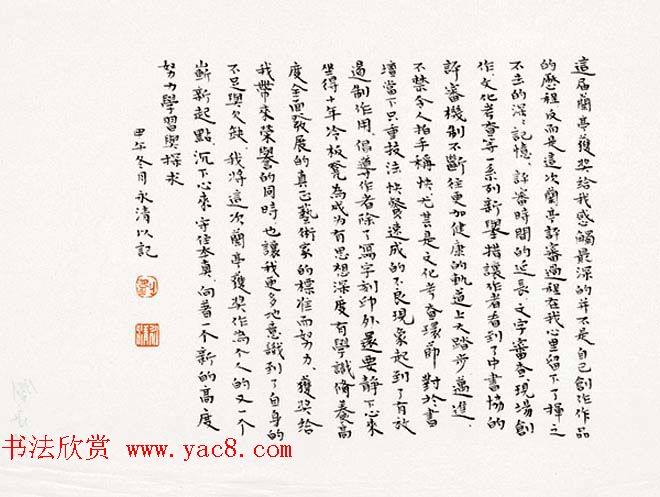 這届蘭亭獲奖给我感觸最深的并不是自己創作作品
的歷程反而是這次蘭亭評審過程在我心里留下了揮之
不去的深々記憶.評審時間的延長.文字審查現場創
作.文化考查等一系列新舉措讓作者看到了中書協的
評審機制不斷往更加健康的軌道上大踏步邁進.
不禁令人拍手稱快尤其是文化考查環節對於書
壇當下只重技法快餐速成的不良現象起到了有效
遏制作用.倡導作者除了寫字刻印外還要静下心來
坐得十年冷板凳為成為有思想深度有學識脩養高
度全面發展的真正藝術家的標准而努力.獲奖给
我帶來榮譽的同時也讓我更多地意識到了自身的
不足與欠缺.我將這次蘭亭獲奖作為个人的又一个
嶄新起點.沉下心來守住本真.向着一个新的高度
努力學習與探求
甲午冬月永清以記
书法欣赏 www.yac8.com